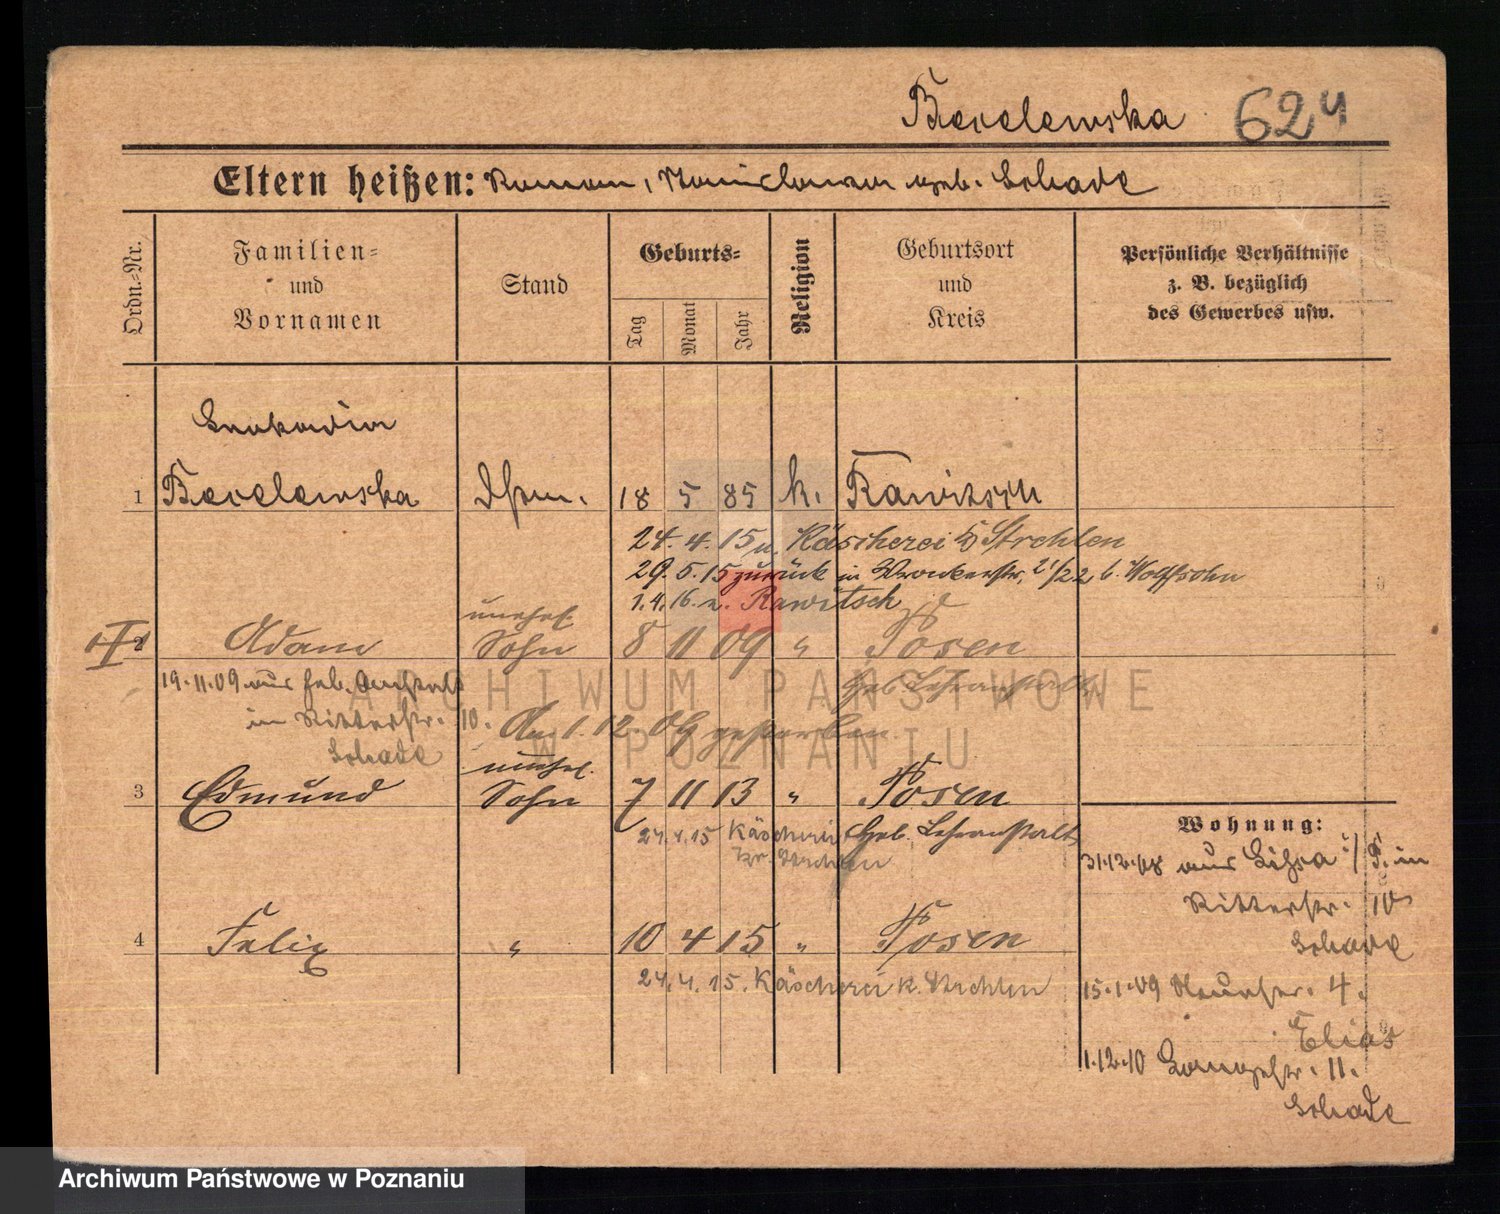 624
Eltern heißen: Roman, geb. Schade
Ordn.-Nr.
Familien- und Vornamen
Stand
Geburts-
Tag
Monat
Jahr
Religion
Geburtsort und Kreis
Persönliche Verhältnisse z. B. bezüglich des Gewerbes usw.
1 18 5 85 k. Rawitsch
24. 4. 15 n. Käscherei Strehlen
29. 5. 15 zurück in Wronkerstr. 21/22 b. Wolffsohn
1. 4. 16 n. Rawitsch
unehel.
2 Adam Sohn 8 11 09 " Posen
19.11.09 aus Heb. Anstalt Heb. Lehranstalt
in Ritterstr. 10. Am 1. 12. 09 gestorben
Schade
unehel.
3 Edmund Sohn 7 11 13 " Posen
24.4.15 Käscherei Heb. Lehranstalt
Kr. Strehlen
4 Felix " 10 4 15 " Posen
24. 4. 15. Käscherei K. Strehlen
Wohnung:
31.12.08 aus Lissa i/P. in
Ritterstr. 10
Schade
15.1.09 4.
Elias
1.12.10 11.
Schade
ARCHIWUM PAŃSTWOWE
W POZNANIU
Archiwum Państwowe w Poznaniu